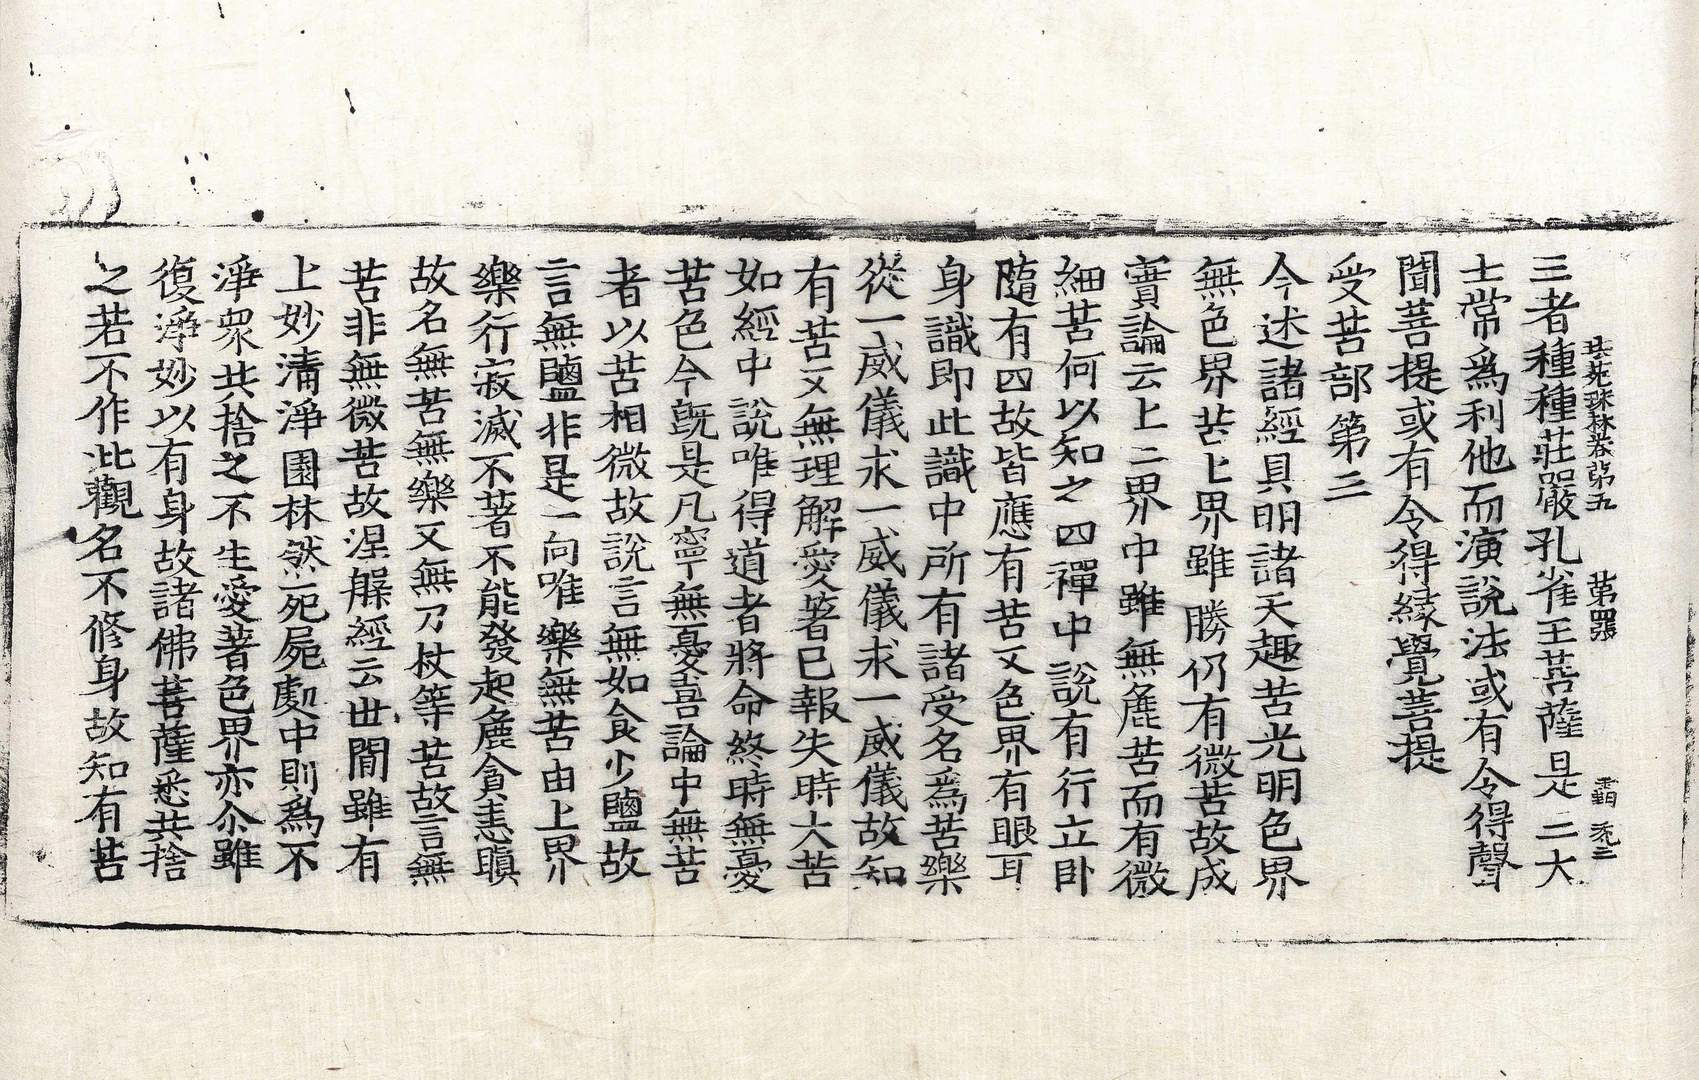 法苑珠林卷第五 第四張 覇
三者種種莊嚴孔雀王菩薩是二大
士常爲利他而演說法或有令得聲
聞菩提或有令得緣覺菩提
受苦部第三
今述諸經具明諸天趣苦光明色界
無色界苦上界雖勝仍有微苦故成
實論云上二界中雖無麁苦而有微
細苦何以知之四禪中說有行立卧
隨有四故皆應有苦又色界有眼耳
身識即此識中所有諸受名爲苦樂
從一威儀求一威儀求一威儀故知
有苦又無理解愛著已報失時大苦
如經中說唯得道者將命終時無憂
苦色今旣是凡寧無憂喜論中無苦
者以苦相微故說言無如食少鹽故
言無鹽非是一向唯樂無苦由上界
樂行寂滅不著不能發起麁貪恚瞋
故名無苦無樂又無刀杖等苦故言無
苦非無微苦故涅槃經云世間雖有
上妙清淨園林然死屍處中則爲不
淨衆共捨之不生愛著色界亦尒雖
復淨妙以有身故諸佛菩薩悉共捨
之若不作此觀名不修身故知有苦